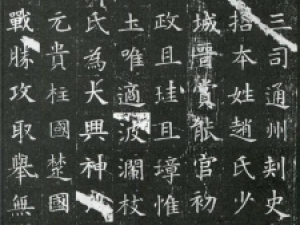 三司通州刺史
捨本姓趙氏少
城晉賞能官初
政且珪且璋惟
土唯適波瀾枝
氏為大興神
元貴柱國楚國
戰勝攻取舉無